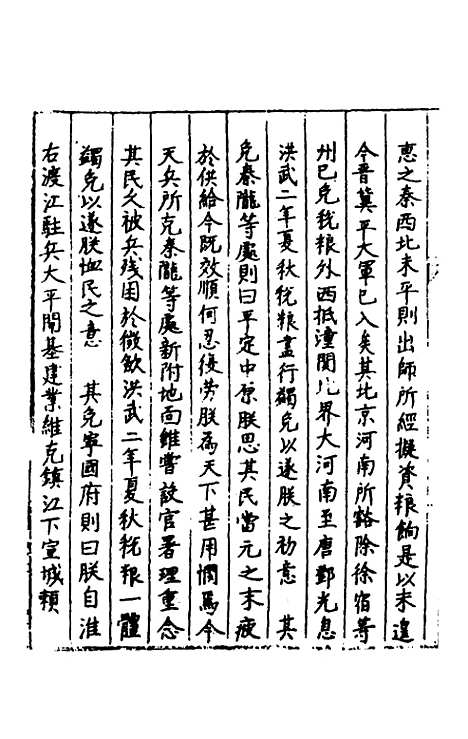 惠之秦西北未平則出師所經擬資粮餉是以未遑
今晋冀平大軍已入矣其北京河南所豁除徐宿等
州已免税粮外西抵潼関北界大河南至唐鄧光息
洪武二年夏秋税粮盡行蠲免以遂朕之初意　其
免秦隴等處則曰平定中原朕思其民當元之末疲
於供給今既效順何忍復劳朕為天下甚用憫焉今
天兵所克秦隴等處新附地面雖嘗設官署理重念
其民久被兵残困於徵歛洪武二年夏秋税粮一體
蠲免以遂朕恤民之意　其免寧國府則曰朕自淮
右渡江駐兵太平開基建業維克鎮江下宣城頼